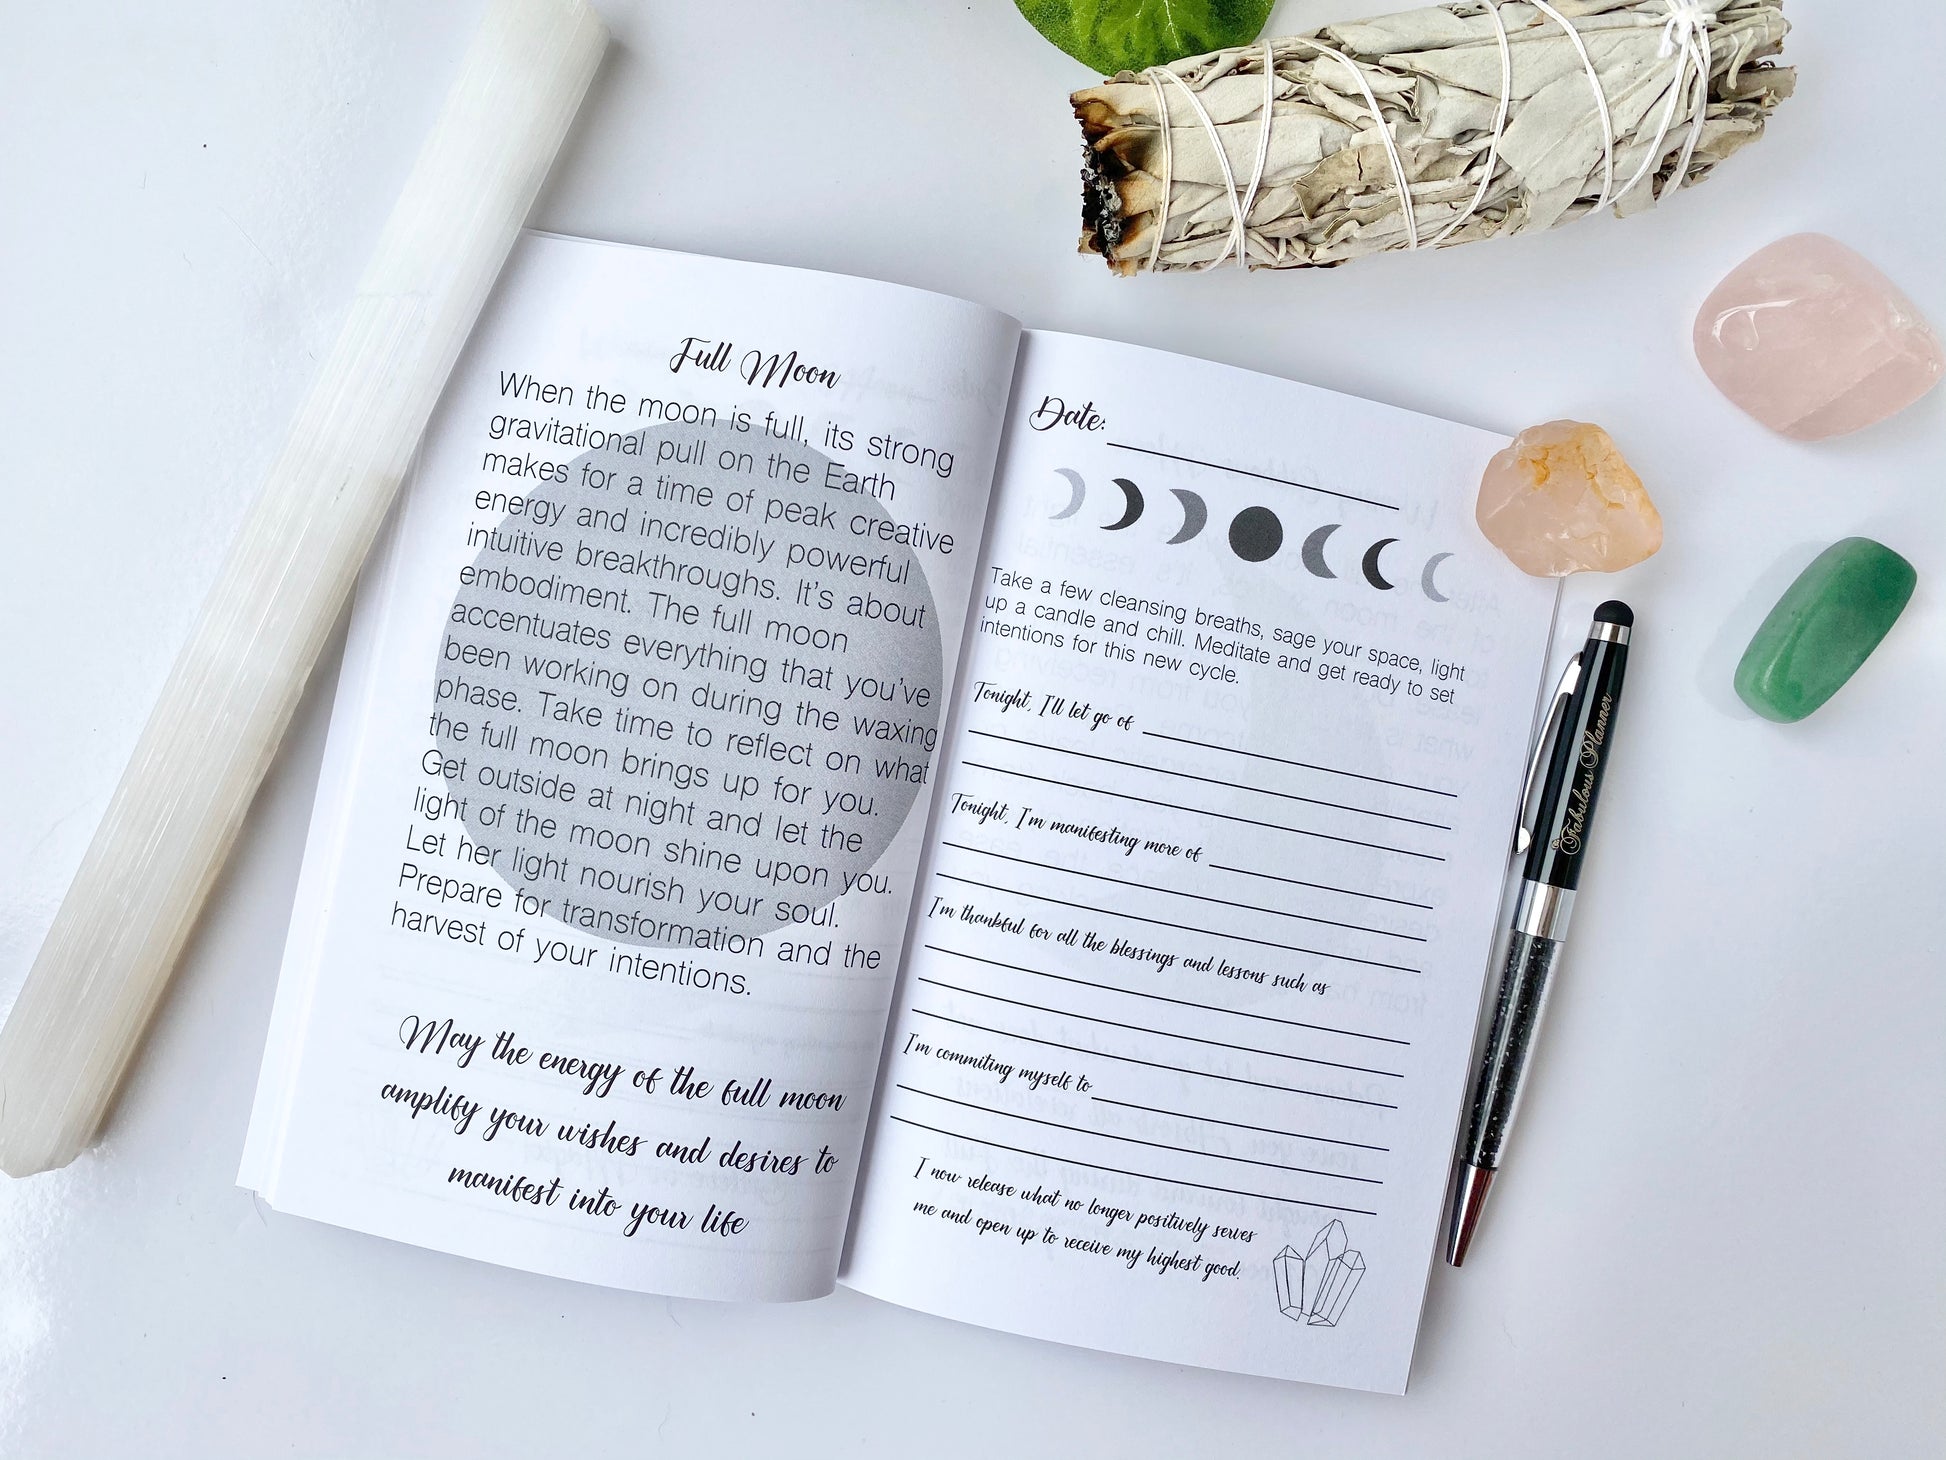 Full Moon
When the moon is full, its strong
gravitational pull on the Earth
makes for a time of peak creative
energy and incredibly powerful
intuitive breakthroughs. It's about
embodiment. The full moon
accentuates everything that you've
been working on during the waxing
phase. Take time to reflect on what
the full moon brings up for you.
Get outside at night and let the
light of the moon shine upon you.
Let her light nourish your soul.
Prepare for transformation and the
harvest of your intentions.
May the energy of the full moon
amplify your wishes and desires to
manifest into your life
Date:
Take a few cleansing breaths, sage your space, light
up a candle and chill. Meditate and get ready to set
intentions for this new cycle.
Tonight, I'll let go of
Tonight, I'm manifesting more of
I'm thankful for all the blessings and lessons such as
I'm commiting myself to
I now release what no longer positively serves
me and open up to receive my highest good.
Fabulous Planner